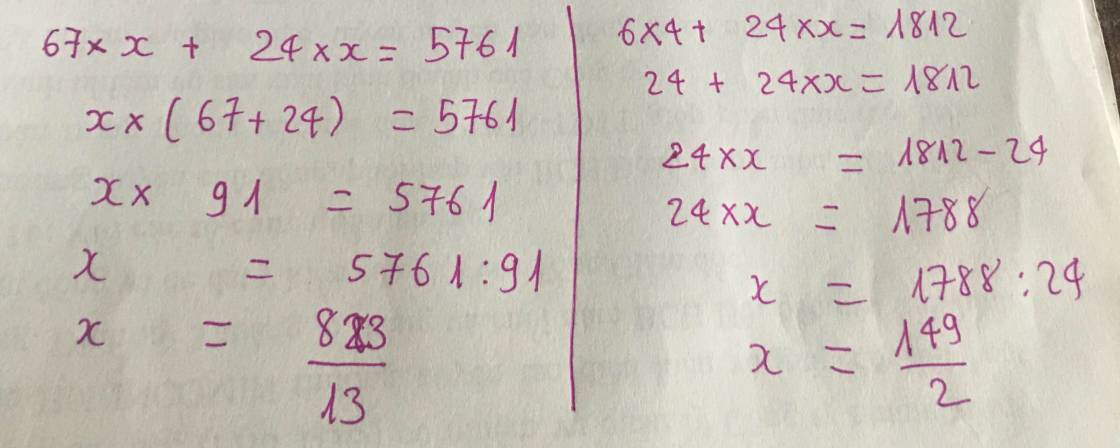 67×x + 24×x = 5761
x×(67+24) = 5761
x× 91 = 5761
x = 5761:91
x = 823
13
6×4+ 24×x= 1812
24 + 24×x= 1812
24×x = 1812-24
24×x = 1788
x = 1788:24
x = 149
2